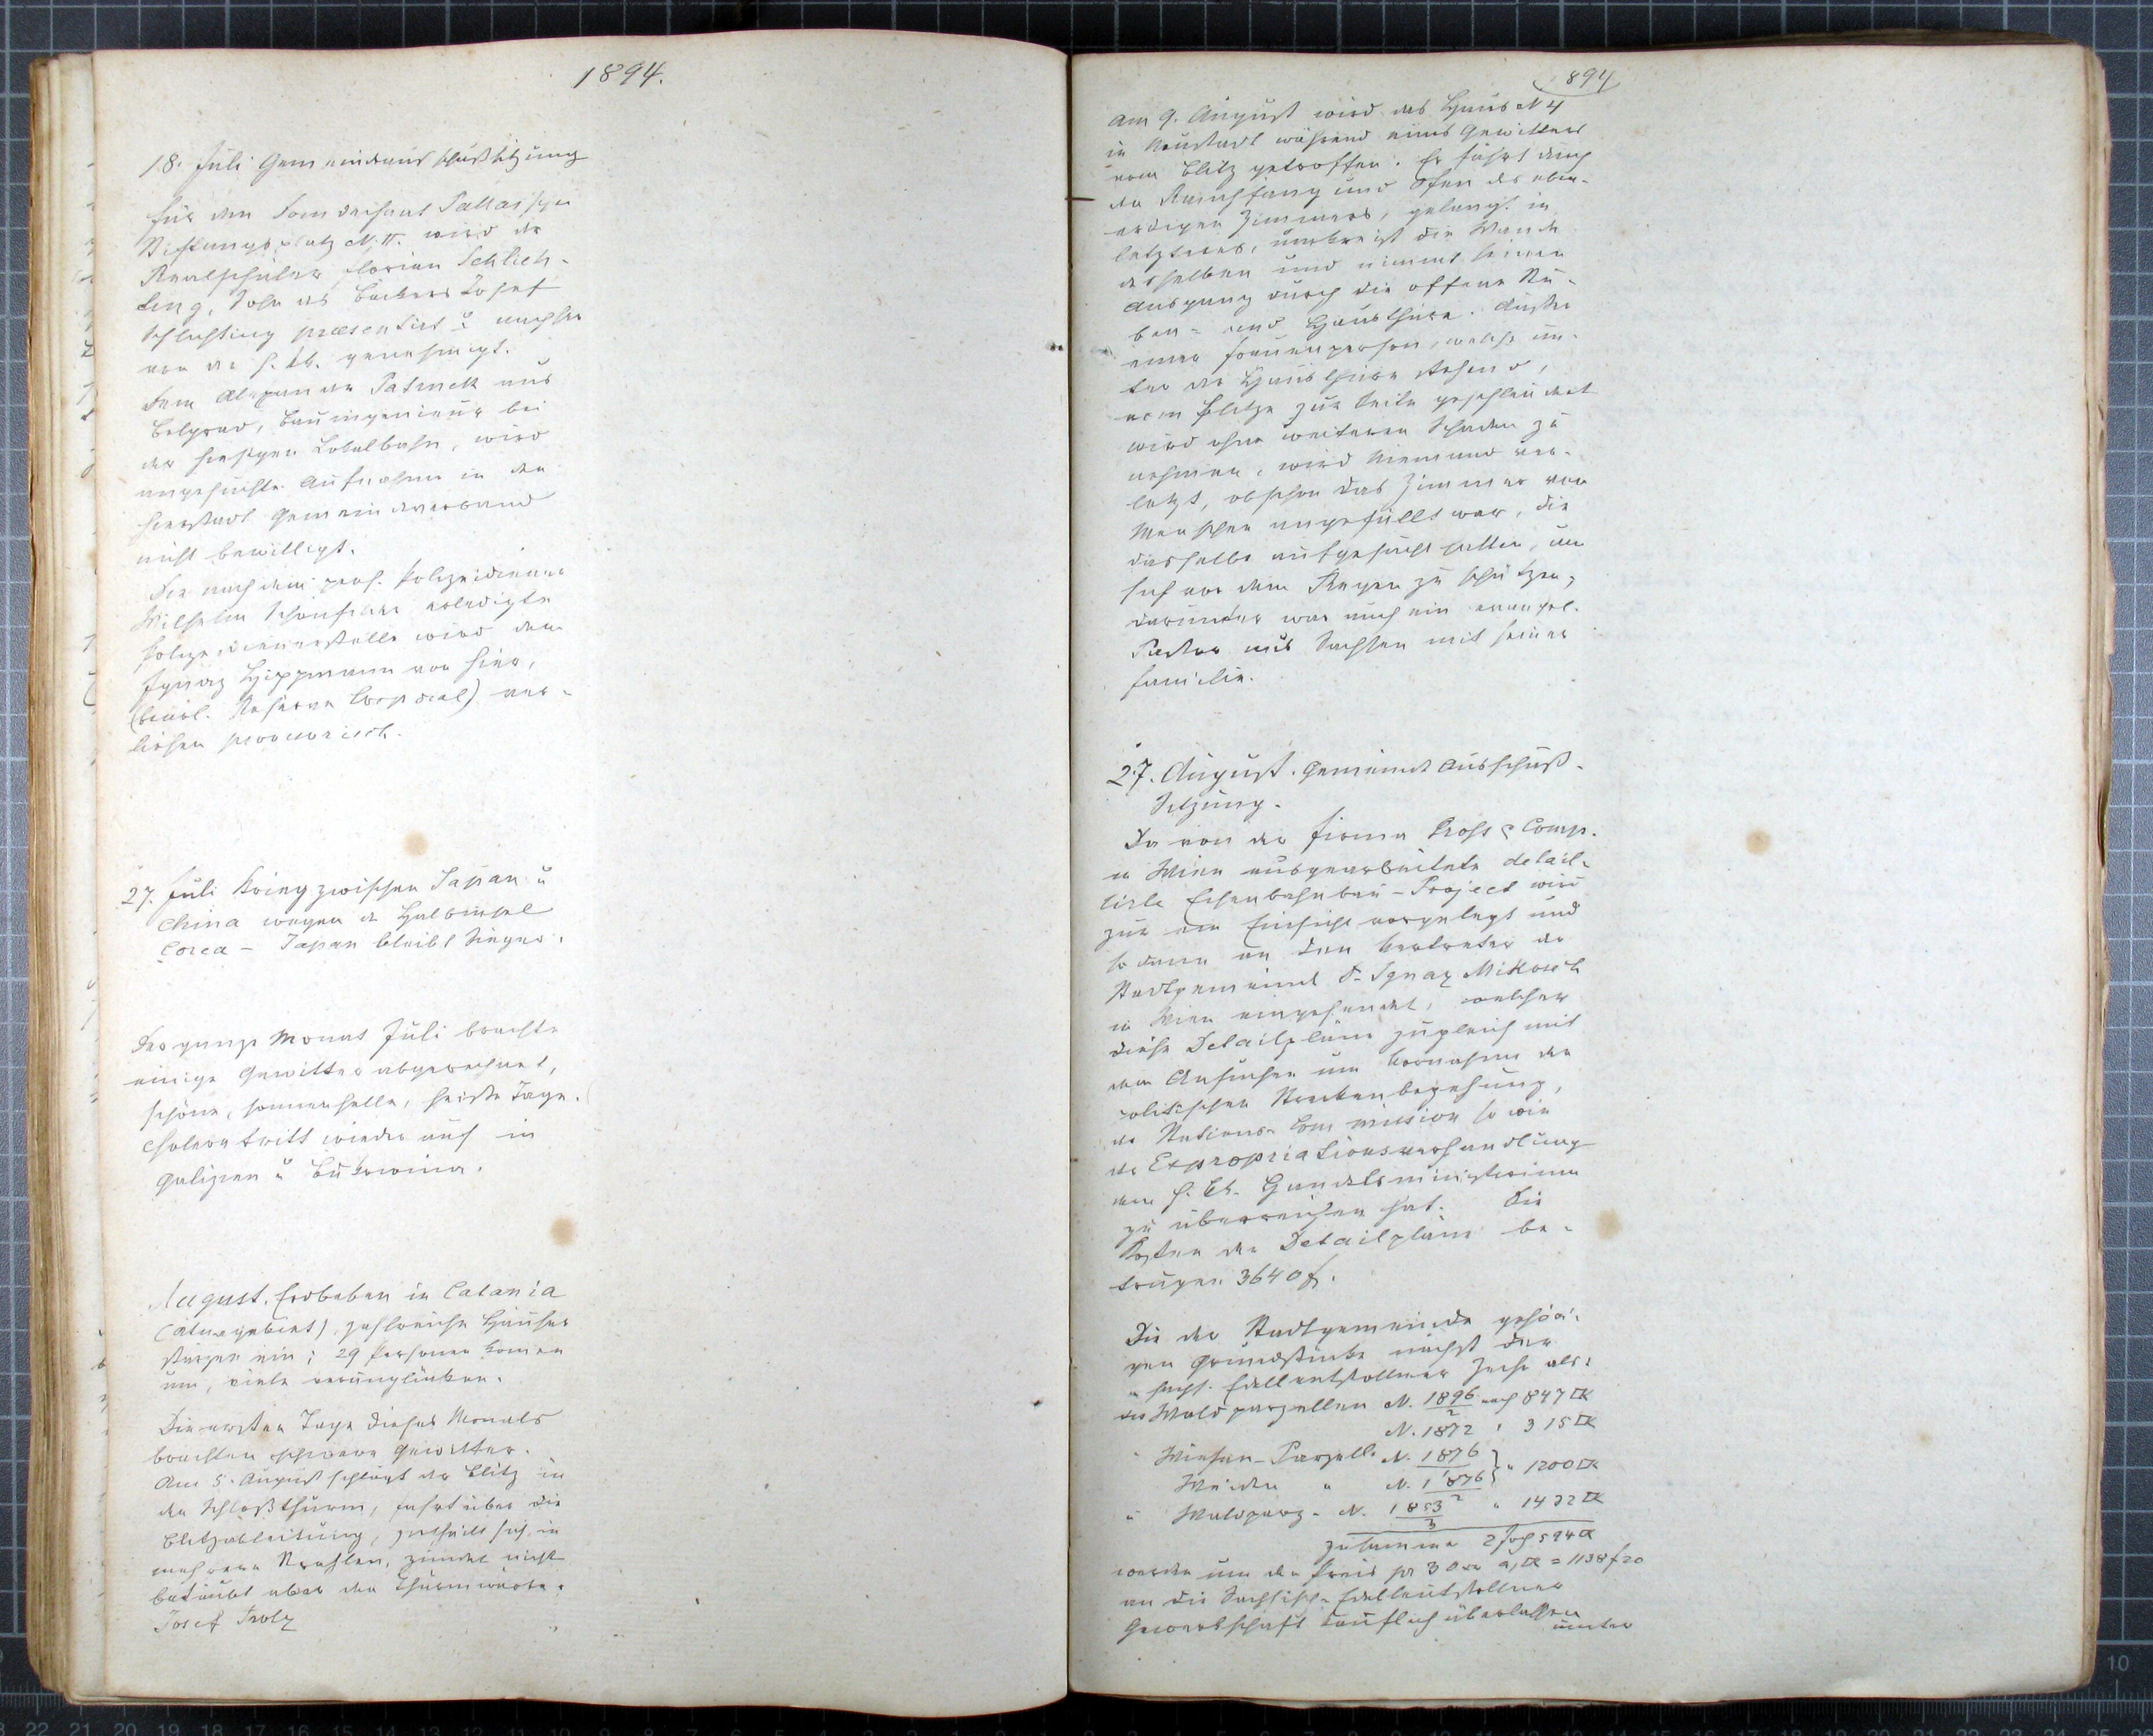 1894.
18. Juli Gemeindeausschußsitzung
für den Domdechant Pallas'schen
Stiftungsplatz N. II. wird der
Realschüler Florian Schlich-
ting, Sohn des Bäckers Josef
Schlichting praesentirt u nachher
von der h. Stth. genehmigt.
Dem Alexander aus
Belgrad, Bauingenieur bei
der hiesigen Lokalbahn, wird
angesuchte Aufnahme in den
hierstädt Gemeindeverband
nicht bewilligt.
Die nach dem pens. Polizeidiener
Wilhelm erledigte
Polizeidienerstelle wird dem
Ignaz Hippmann von hier,
(beurl. Reserve Corporal) ver-
liehen provisorisch.
27. Juli Krieg zwischen Japan u
China wegen der Halbinsel
Corea - Japan bleibt Sieger.
Das ganze Monat Juli brachte
einige Gewitter abgerechnet,
schöne, sonnenhelle, heiße Tage.
Cholera tritt wieder auf in
Galizien u Bukowina.
August. Erdbeben in Catania
(Ätnagebiet), zahlreiche Häuser
stürzen ein; 29 Personen komen
um, viele verunglücken.
Die ersten Tage dieses Monats
brachten schwere Gewitter.
Am 5. August schlägt der Blitz in
den Schloßthurm, fahrt über die
Blitzableitung, zertheilt sich in
mehrere Strahlen, zündet nicht
betäubt aber den Thurmwärter
Josef
894
Am 9. August wird das Haus N 4
in Neustadt während eines Gewitters
vom Blitz getroffen. Er fährt durch
den Rauchfang und Ofen des eben-
erdigen Zimmers, gelangt in
letzteres, umkreist die Wände
desselben und nimmt seinen
Ausgang durch die offene Stu-
ben- und Hausthüre. Außer
einer Frauensperson, welche un-
ter der Hausthüre stehend,
vom Blitze zur Seite geschleudert
wird ohne weiteren Schaden zu
nehmen, wird Niemand ver-
letzt, obschon das Zimmer von
Menschen angefüllt war, die
dasselbe aufgesucht hatten, um
sich vor dem Regen zu schützen,
darunter war auch ein evangel.
Pastor aus Sachsen mit seiner
Familie.
27. August. Gemeinde Ausschuß-
Sitzung.
Da von der Firma Gross & Comp.
in Wien ausgearbeitete detail-
lirte Eisenbahnbau-Project wird
zur Einsicht vorgelegt und
so dann an den Vertreter der
Stadtgemeinde Dr Ignaz Mikosch
in Wien eingesendet, welcher
diese Detailpläne zugleich mit
dem Ansuchen um Vornahme der
politischen Streckenbegehung,
der Stations-Commission so wie
der Expropriationsverhandlung
dem h. kk. Handelsministerium
zu überreichen hat. Die
Kosten der Detailpläne be-
trugen 3640 f.
Die der Stadtgemeinde gehöri-
gen Grundstücke nächst der
sächs. Edelleutstollner Zeche als:
die Waldparzellen N. 1896/2 nach 847 □K
N. 1872 " 315 □K
" Wiesen-Parzelle N. 1876/1
Weiden " N. 1876/2 } " 1200 □K
" Waldparz. N. 1853/3 " 1432 □K
zusamme 2 Joch 594 □K
werden um den Preis pr 30 xr à □K = 1138 f 20
an die Sächsische Edelleutstollner
Gewerkschaft käuflich überlassen
unter